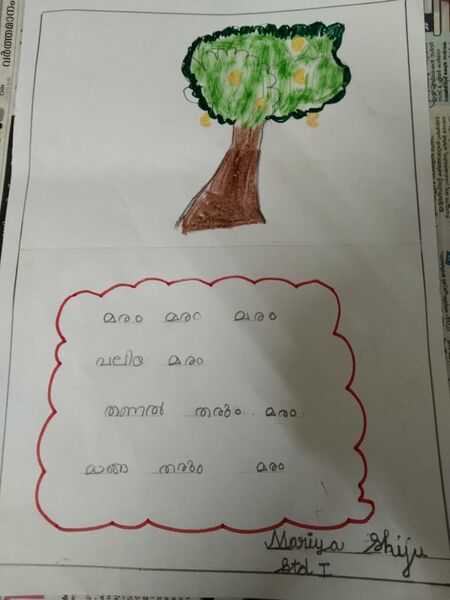 മരം മരം മരം
വലിയ മരം
തണൽ തരും. മരം.
മാങ്ങ തരും മരം
Mariya Shiju
Std I
വർത്തമാനം